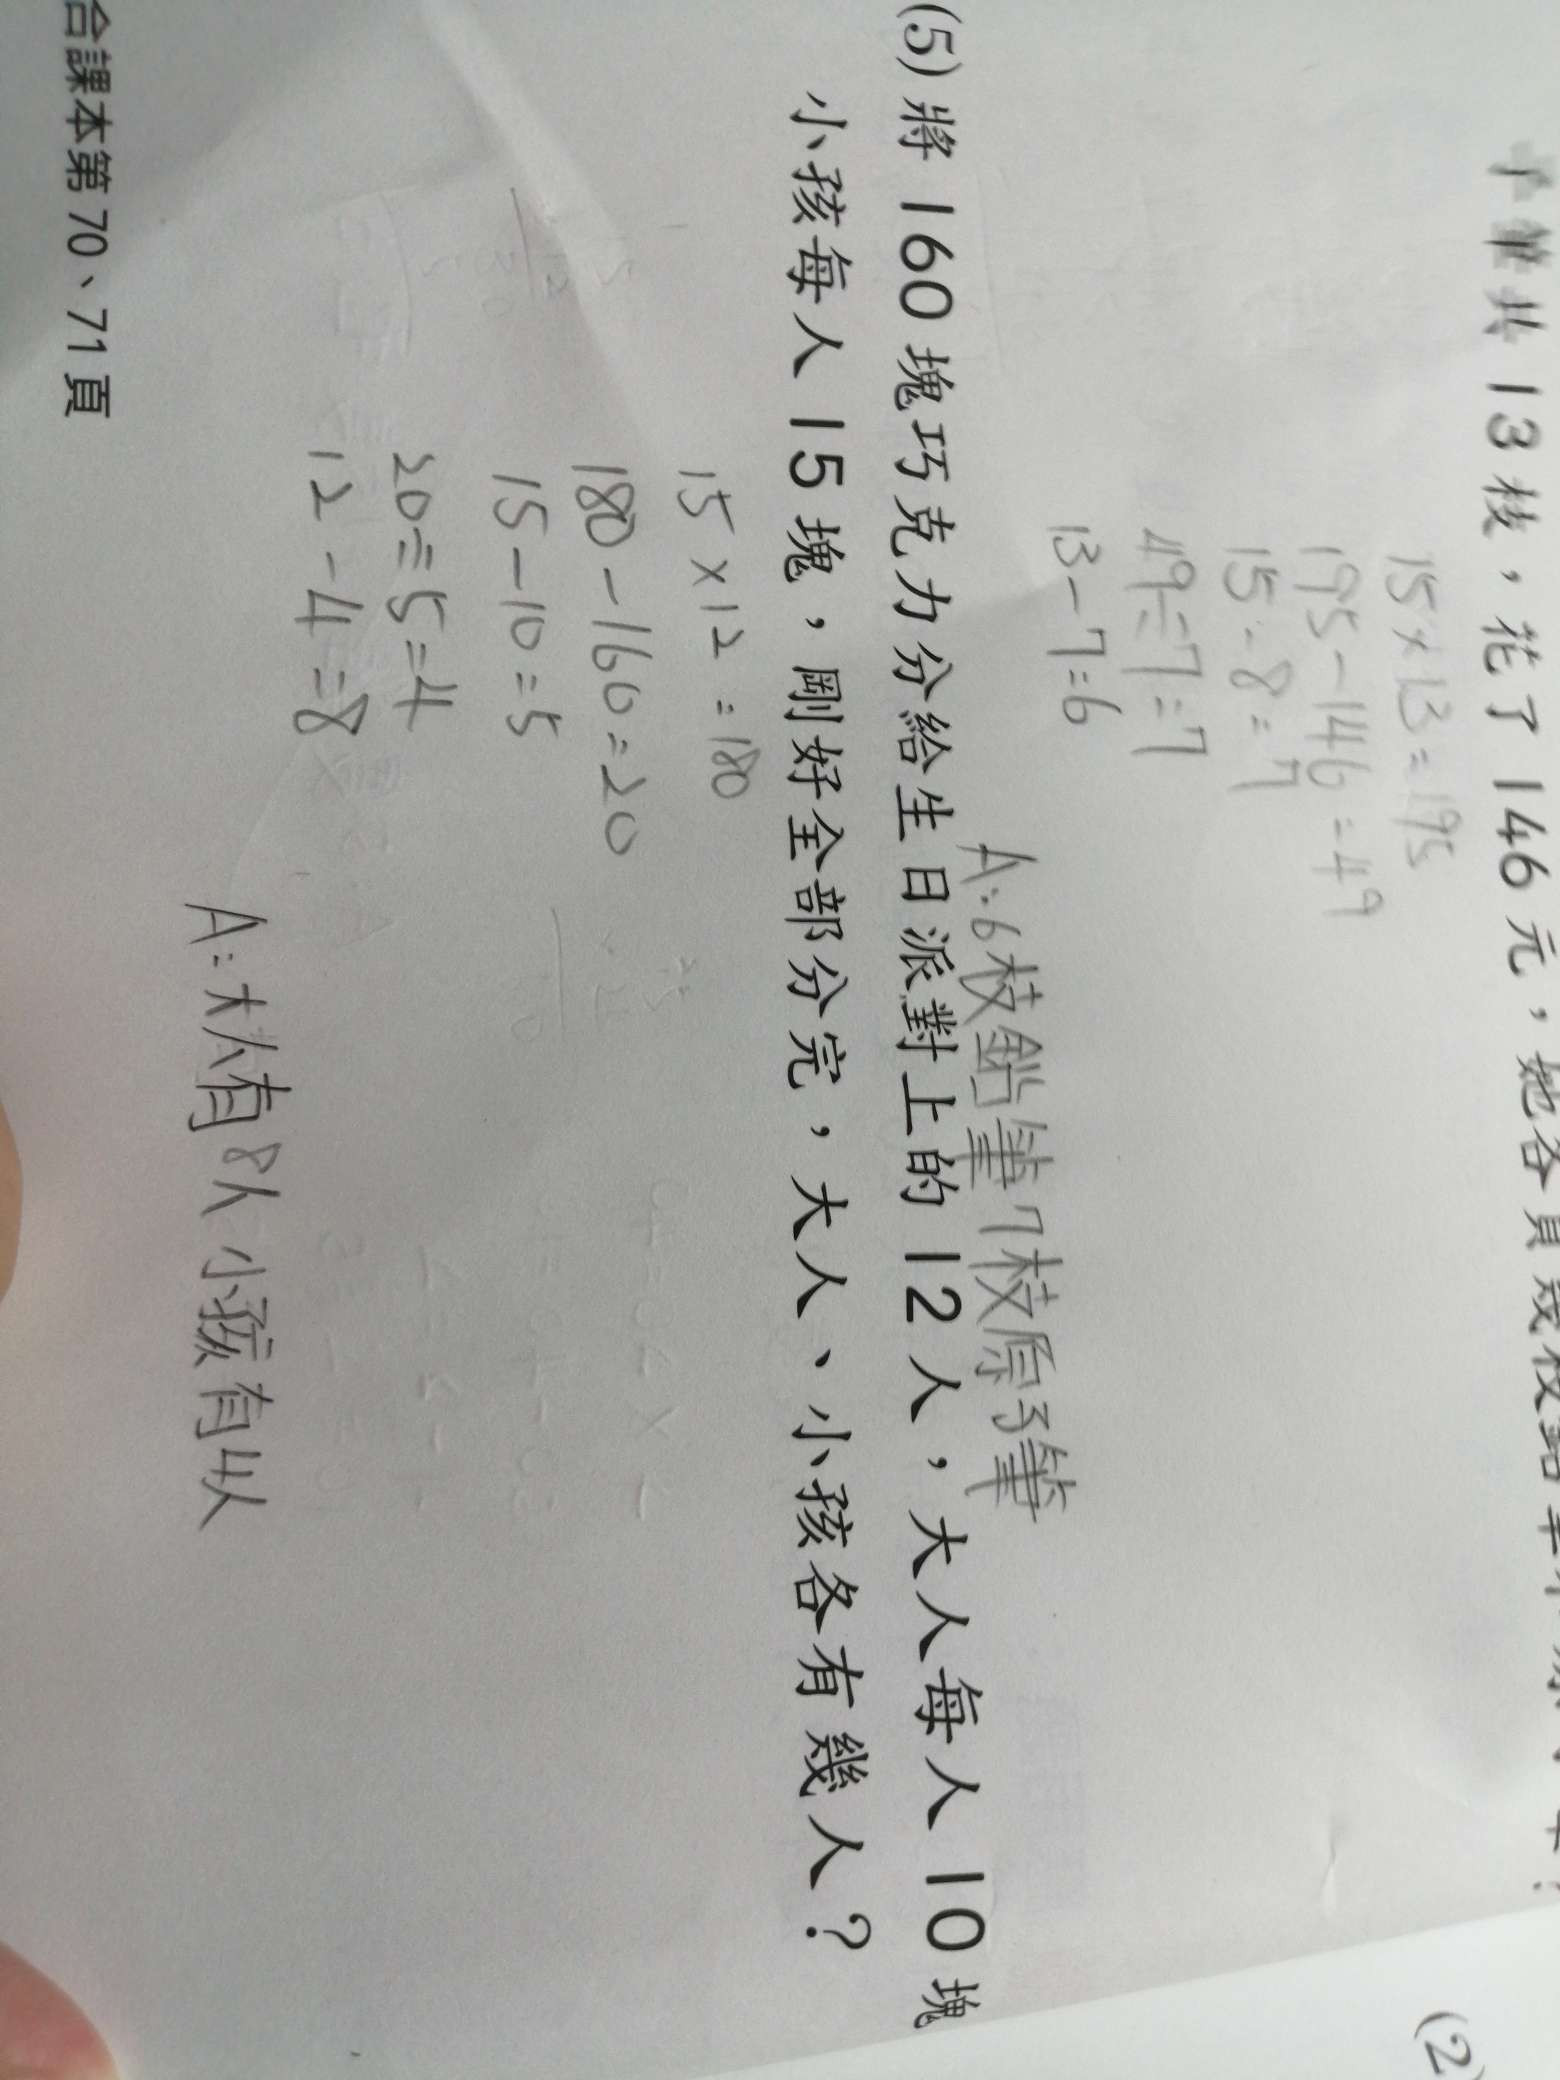 子筆共 13 枝，花了 146 元，她各買幾枝鉛筆和原子筆？
15×13=195
195-146=49
15-8=7
49÷7=7
13-7=6
A:6枝鉛筆7枝原子筆
(5) 將 160 塊巧克力分給生日派對上的 12 人，大人每人 10 塊
小孩每人 15 塊，剛好全部分完，大人、小孩各有幾人？
15×12=180
180-160=20
15-10=5
20÷5=4
12-4=8
A:大人有8人小孩有4人
合課本第 70、71 頁
(2)